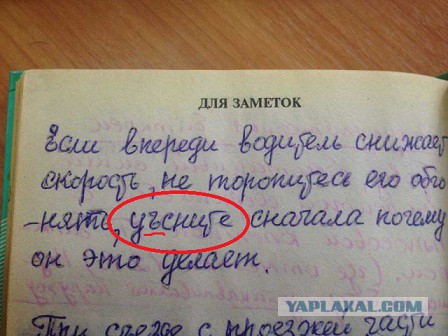 ДЛЯ ЗАМЕТОК
Если впереди водитель снижает
скорость, не торопитесь его обго
-нять, уъсните сначала почему
он это делает.
При съезде с проезжей части
YAPLAKAL.COM